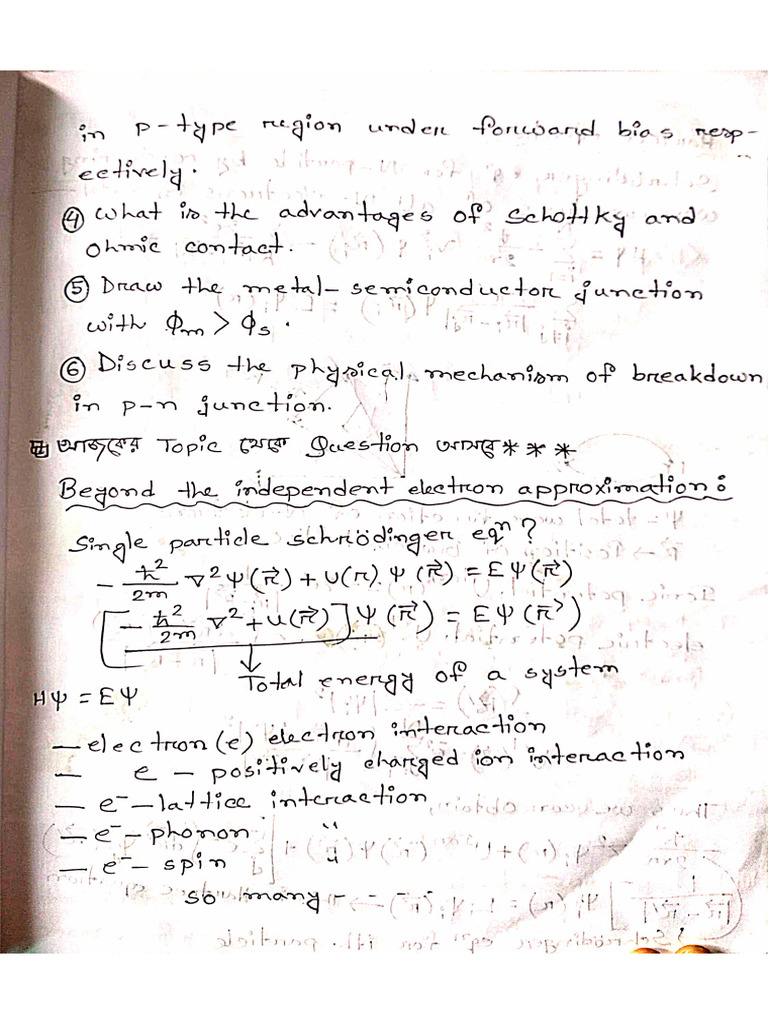 in p-type region under forward bias resp-
ectively.
④ What is the advantages of Schottky and
Ohmic contact.
⑤ Draw the metal-semiconductor junction
with Φm > Φs.
⑥ Discuss the physical mechanism of breakdown
in p-n junction.
আজকের Topic থেকে Question আসবে * * *
Beyond the independent electron approximation:
Single particle schrödinger eqⁿ?
- ħ²/2m ∇²Ψ(r⃗) + U(r) Ψ(r⃗) = EΨ(r⃗)
[- ħ²/2m ∇² + U(r⃗)] Ψ(r⃗) = EΨ(r⃗)
↓
Total energy of a system
HΨ = EΨ
— electron(e) electron interaction
— e — positively charged ion interaction
— e⁻ — lattice interaction
— e⁻ — phonon "
— e⁻ — spin "
so many - - -